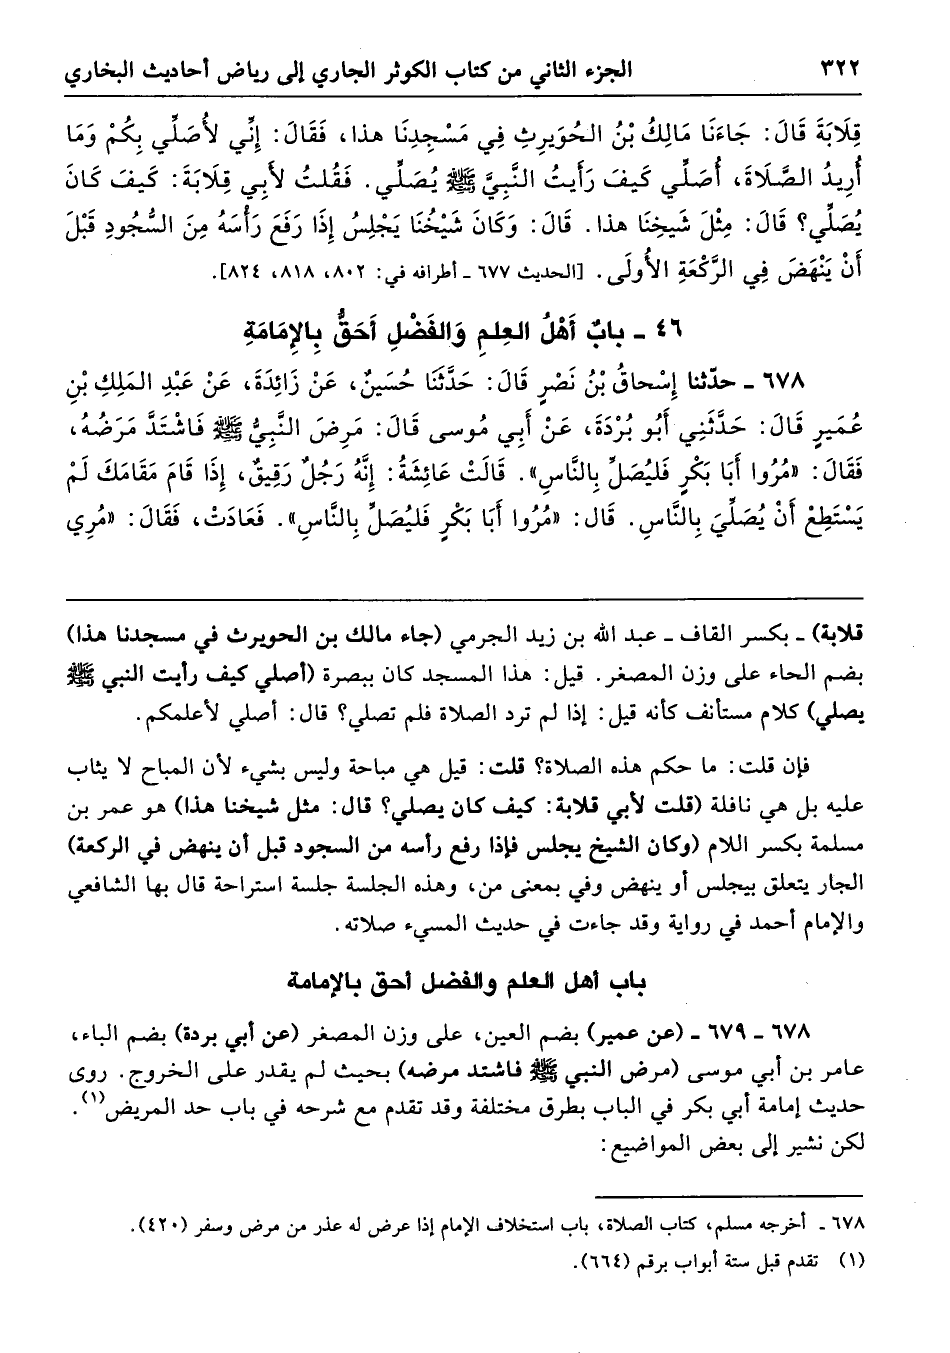 ٣٢٢ الجزء الثاني من كتاب الكوثر الجاري إلى رياض أحاديث البخاري
قِلَابَةَ قَالَ: جَاءَنَا مَالِكُ بْنُ الحُوَيرِثِ فِي مَسْجِدِنَا هذا، فَقَالَ: إِنِّي لأُصَلِّي بِكُمْ وَمَا
أُرِيدُ الصَّلَاةَ، أُصَلِّي كَيفَ رَأَيتُ النَّبِيَّ ﷺ يُصَلِّي. فَقُلتُ لأَبِي قِلَابَةَ: كَيفَ كَانَ
يُصَلِّي؟ قَالَ: مِثْلَ شَيخِنَا هذا. قَالَ: وَكَانَ شَيْخُنَا يَجْلِسُ إِذَا رَفَعَ رَأْسَهُ مِنَ السُّجُودِ قَبْلَ
أَنْ يَنْهَضَ فِي الرَّكْعَةِ الأُولَى. [الحديث ٦٧٧ ـ أطرافه في: ٨٠٢، ٨١٨، ٨٢٤].
٤٦ ـ بابٌ أَهْلُ العِلمِ وَالفَضْلِ أَحَقُّ بِالإِمَامَةِ
٦٧٨ ـ حدّثنا إِسْحاقُ بْنُ نَصْرٍ قَالَ: حَدَّثَنَا حُسَينٌ، عَنْ زَائِدَةَ، عَنْ عَبْدِ المَلِكِ بْنِ
عُمَيرٍ قَالَ: حَدَّثَنِي أَبُو بُرْدَةَ، عَنْ أَبِي مُوسى قَالَ: مَرِضَ النَّبِيُّ ﷺ فَاشْتَدَّ مَرَضُهُ،
فَقَالَ: «مُرُوا أَبَا بَكْرٍ فَليُصَلِّ بِالنَّاسِ». قَالَتْ عَائِشَةُ: إِنَّهُ رَجُلٌ رَقِيقٌ، إِذَا قَامَ مَقَامَكَ لَمْ
يَسْتَطِعْ أَنْ يُصَلِّيَ بِالنَّاسِ. قَال: «مُرُوا أَبَا بَكْرٍ فَليُصَلِّ بِالنَّاسِ». فَعَادَتْ، فَقَالَ: «مُرِي
قلابة) ـ بكسر القاف ـ عبد الله بن زيد الجرمي (جاء مالك بن الحويرث في مسجدنا هذا)
بضم الحاء على وزن المصغر. قيل: هذا المسجد كان ببصرة (أصلي كيف رأيت النبي ﷺ
يصلي) كلام مستأنف كأنه قيل: إذا لم ترد الصلاة فلم تصلي؟ قال: أصلي لأعلمكم.
فإن قلت: ما حكم هذه الصلاة؟ قلت: قيل هي مباحة وليس بشيء لأن المباح لا يثاب
عليه بل هي نافلة (قلت لأبي قلابة: كيف كان يصلي؟ قال: مثل شيخنا هذا) هو عمر بن
مسلمة بكسر اللام (وكان الشيخ يجلس فإذا رفع رأسه من السجود قبل أن ينهض في الركعة)
الجار يتعلق بيجلس أو ينهض وفي بمعنى من، وهذه الجلسة جلسة استراحة قال بها الشافعي
والإمام أحمد في رواية وقد جاءت في حديث المسيء صلاته.
باب أهل العلم والفضل أحق بالإمامة
٦٧٨ ـ ٦٧٩ ـ (عن عمير) بضم العين، على وزن المصغر (عن أبي بردة) بضم الباء،
عامر بن أبي موسى (مرض النبي ﷺ فاشتد مرضه) بحيث لم يقدر على الخروج. روى
حديث إمامة أبي بكر في الباب بطرق مختلفة وقد تقدم مع شرحه في باب حد المريض(١).
لكن نشير إلى بعض المواضيع:
٦٧٨ ـ أخرجه مسلم، كتاب الصلاة، باب استخلاف الإمام إذا عرض له عذر من مرض وسفر (٤٢٠).
(١) تقدم قبل ستة أبواب برقم (٦٦٤).